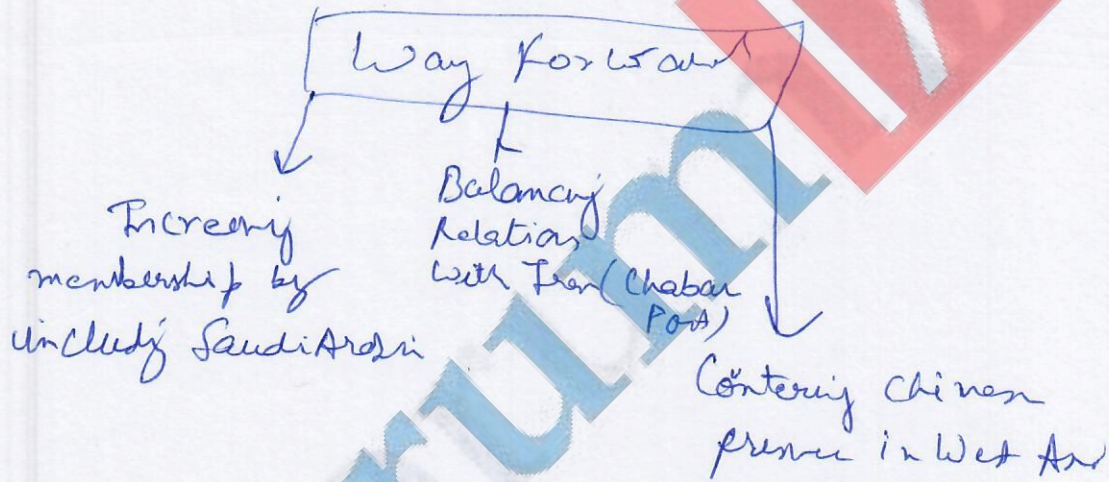 Way Forward
Increasing
membership by
including Saudi Arabia
Balancing
Relations
with Iran (Chabar
Port)
Contering Chinese
presence in West Asia
rum